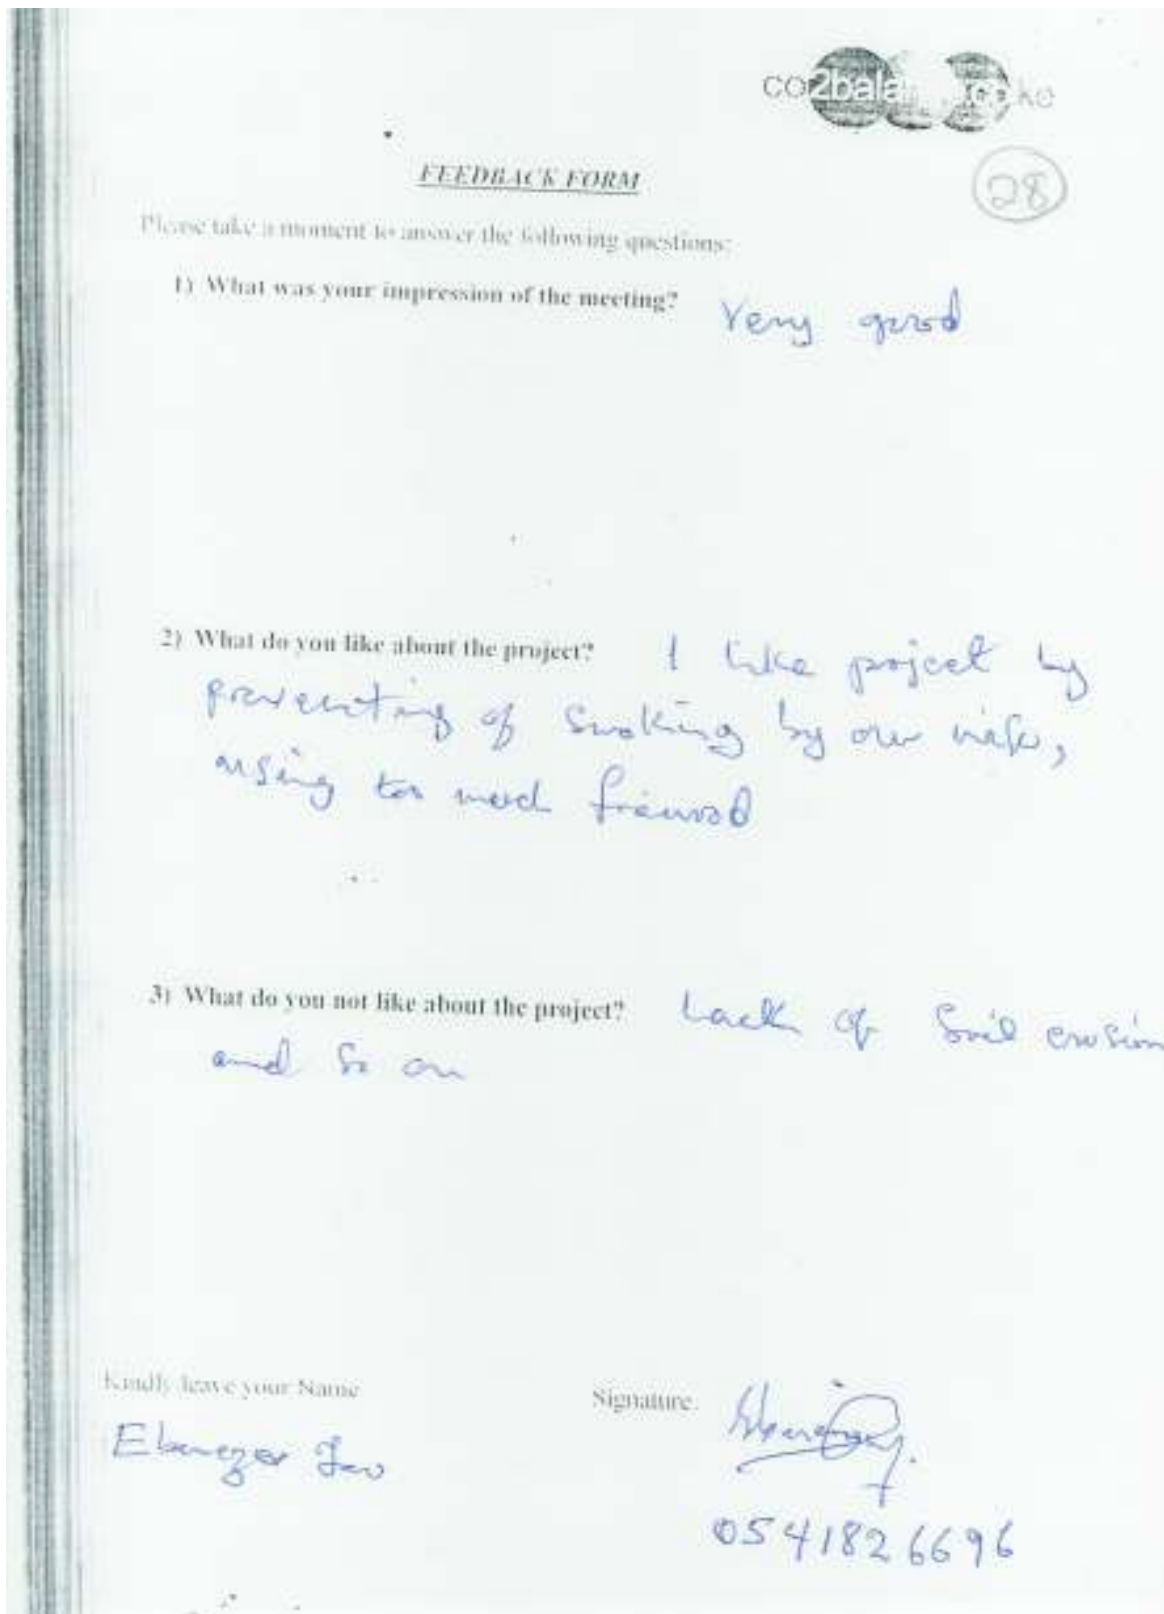 co2balance.co.ke
FEEDBACK FORM
28
Please take a moment to answer the following questions:
1) What was your impression of the meeting? Very good
2) What do you like about the project? I like project by
preventing of smoking by our wife,
using too much
3) What do you not like about the project? Lack of Soil erosion
and so on
Kindly leave your Name
Signature.
Ebenezer
0541826696